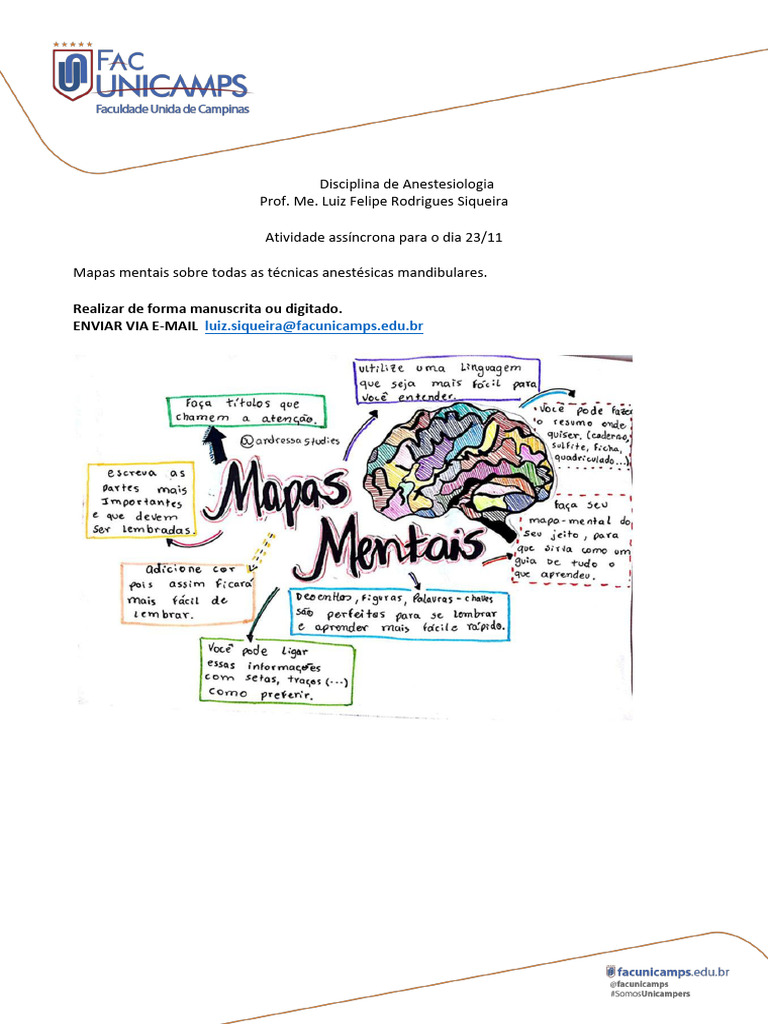 FAC
UNICAMPS
Faculdade Unida de Campinas
Disciplina de Anestesiologia
Prof. Me. Luiz Felipe Rodrigues Siqueira
Atividade assíncrona para o dia 23/11
Mapas mentais sobre todas as técnicas anestésicas mandibulares.
Realizar de forma manuscrita ou digitado.
ENVIAR VIA E-MAIL luiz.siqueira@facunicamps.edu.br
Ultilize uma linguagem
que seja mais fácil para
você entender.
Faça títulos que
chamem a atenção.
@andressastudies
Você pode fazer
o resumo onde
quiser. (caderno,
sulfite, ficha,
quadriculado...)
escreva as
partes mais
Importantes
e que devem
ser lembradas.
Mapas
Mentais
Faça seu
mapa-mental do
seu jeito, para
que sirva como um
guia de tudo o
que aprendeu.
Adicione cor
pois assim ficará
mais fácil de
lembrar.
Desenhos, Figuras, Palavras-chaves
são perfeitos para se lembrar
e aprender mais fácil e rápido.
Você pode ligar
essas informações
com setas, traços (...)
como preferir.
facunicamps.edu.br
@facunicamps
#SomosUnicampers